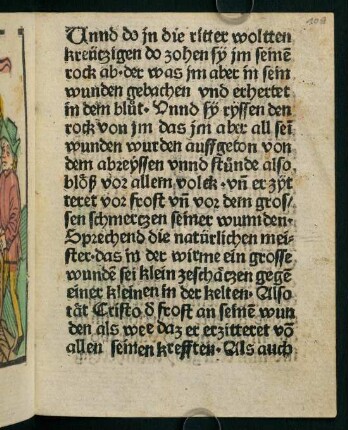 108
Unnd do jn die ritter woltten
kreützigen do zohen sÿ jm seinē
rock ab·der was jm aber in sein
wunden gebachen vnd erhertet
in dem blůt· Vnnd sÿ rÿssen den
rock von jm das jm aber all sei
wunden wurden auffgeton von
dem abreÿssen vnnd stůnde also
blöß vor allem volck·vn̄ er zÿt
teret vor frost vn̄ vor dem gros/
sen schmertzen seiner wunnden·
Sprechend die natürlichen mei/
ster·das in der wirme ein grosse
wundē sei klein zeschätzen gegē
einer kleinen in der kelten· Also
tät Cristo d̄ frost an seinē wun
den als wee daz er erzitteret vō
allen seinen krefften· Als auch